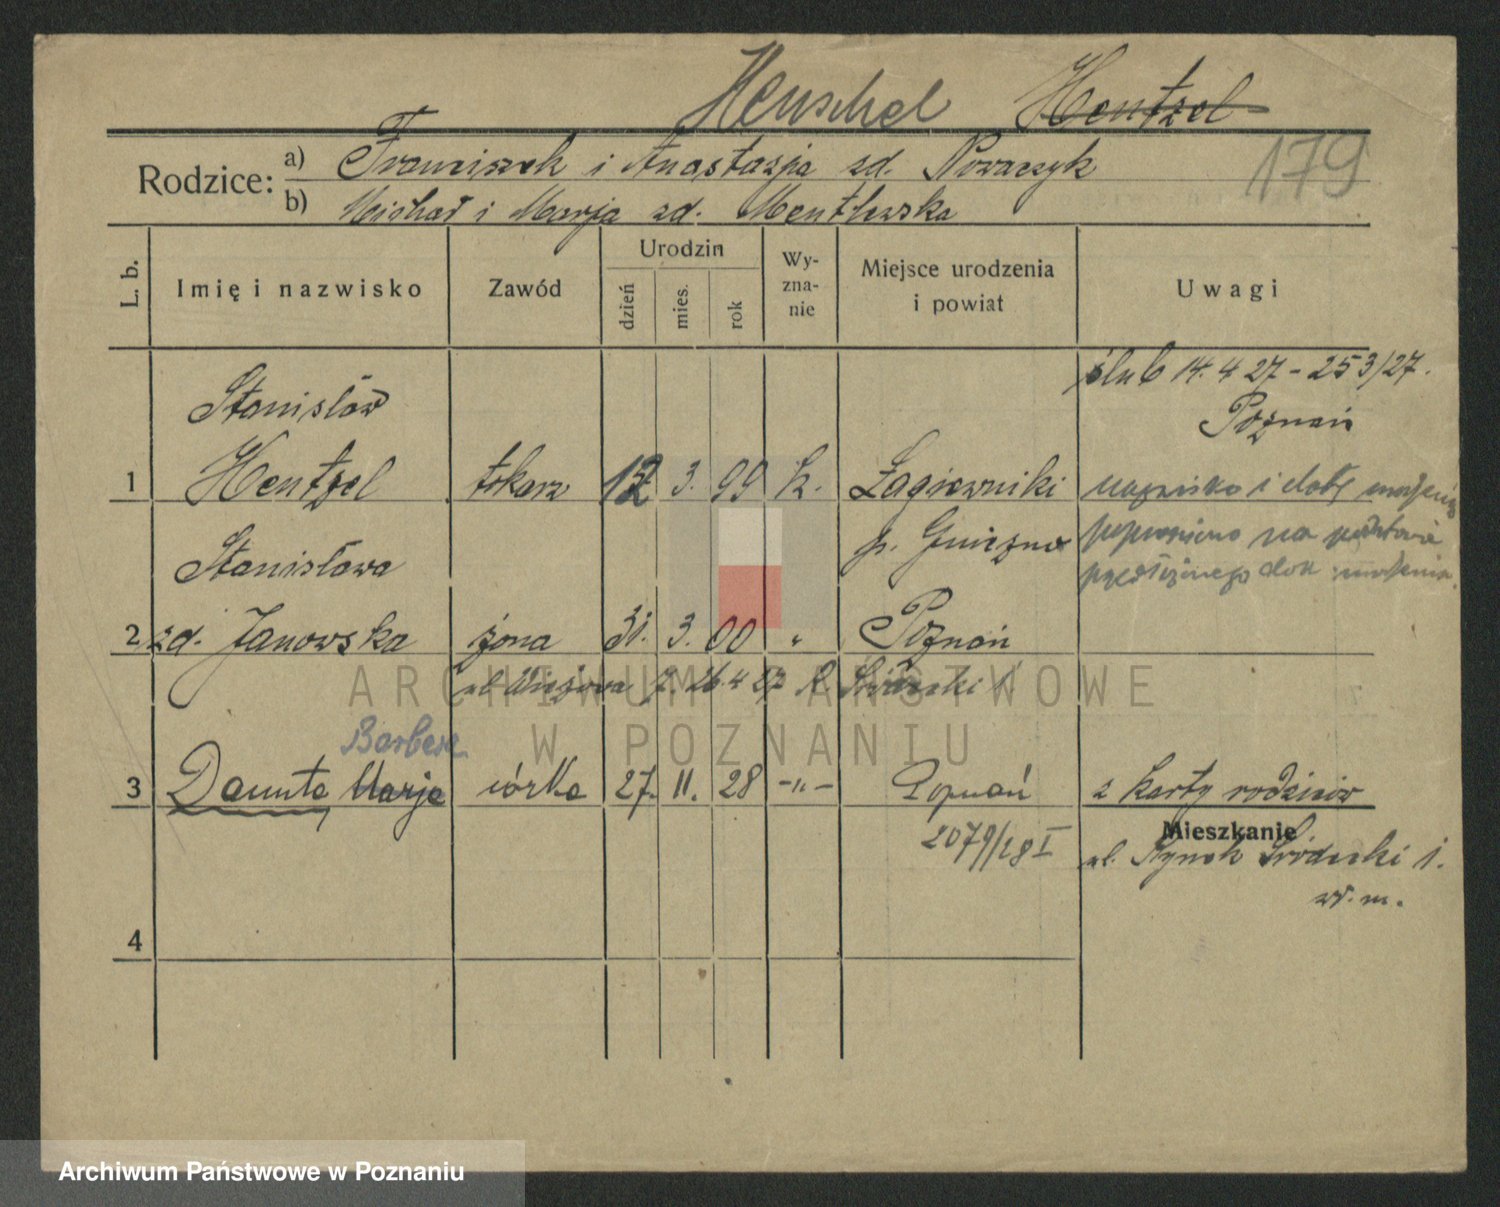 Henschel Hentzel
179
Rodzice: a) Franciszek i Anastazja zd. Nowaczyk
b) Michał i Marja zd. Mentlewska
L. b.
Imię i nazwisko
Zawód
Urodzin
dzień
mies.
rok
Wy-
zna-
nie
Miejsce urodzenia
i powiat
Uwagi
ślub 14.4 27 - 253/27.
Poznań
Stanisław
1 Hentzel tokarz 12 3. 99 k. Łagiewniki
p. Gniezno
nazwisko i datę urodzenia
poprawiono na podstawie
przedłożonego dok urodzenia.
Stanisława
2 zd. Janowska żona 31. 3. 00 " Poznań
ul. 7. 26.4 27 R. Śródecki 1
Barbara
3 Danuta Marja córka 27. 11. 28 -"- Poznań
2079/28 I
z karty rodziców
Mieszkanie
ul. Rynek Śródecki 1.
4
ARCHIWUM PAŃSTWOWE
W POZNANIU
Archiwum Państwowe w Poznaniu